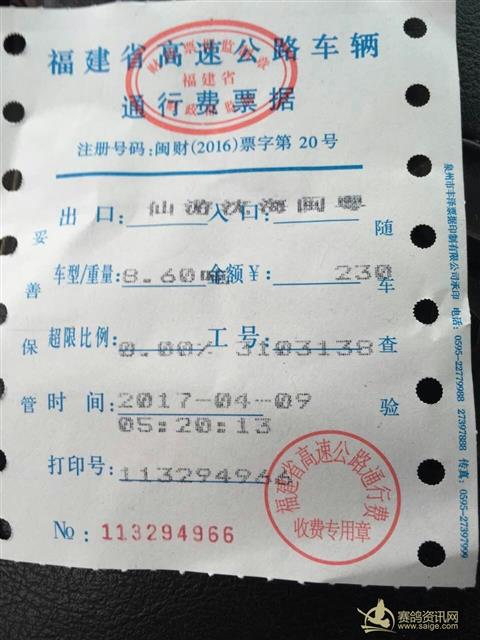 福建省高速公路车辆
通行费票据
福建省
注册号码:闽财(2016)票字第 20号
出口: 仙游沈海 入口: 闽粤
车型/重量: 8.60 金额¥: 230
超限比例: 0.00% 工号: 3103138
时间: 2017-04-09
05:20:13
打印号: 113294966
No: 113294966
妥善保管
随车查验
福建省高速公路通行费
收费专用章
泉州市丰泽票据印制有限公司承印 电话: 0595-22779988 27397888 传真: 0595-27397999
赛鸽资讯网
www.saige.com